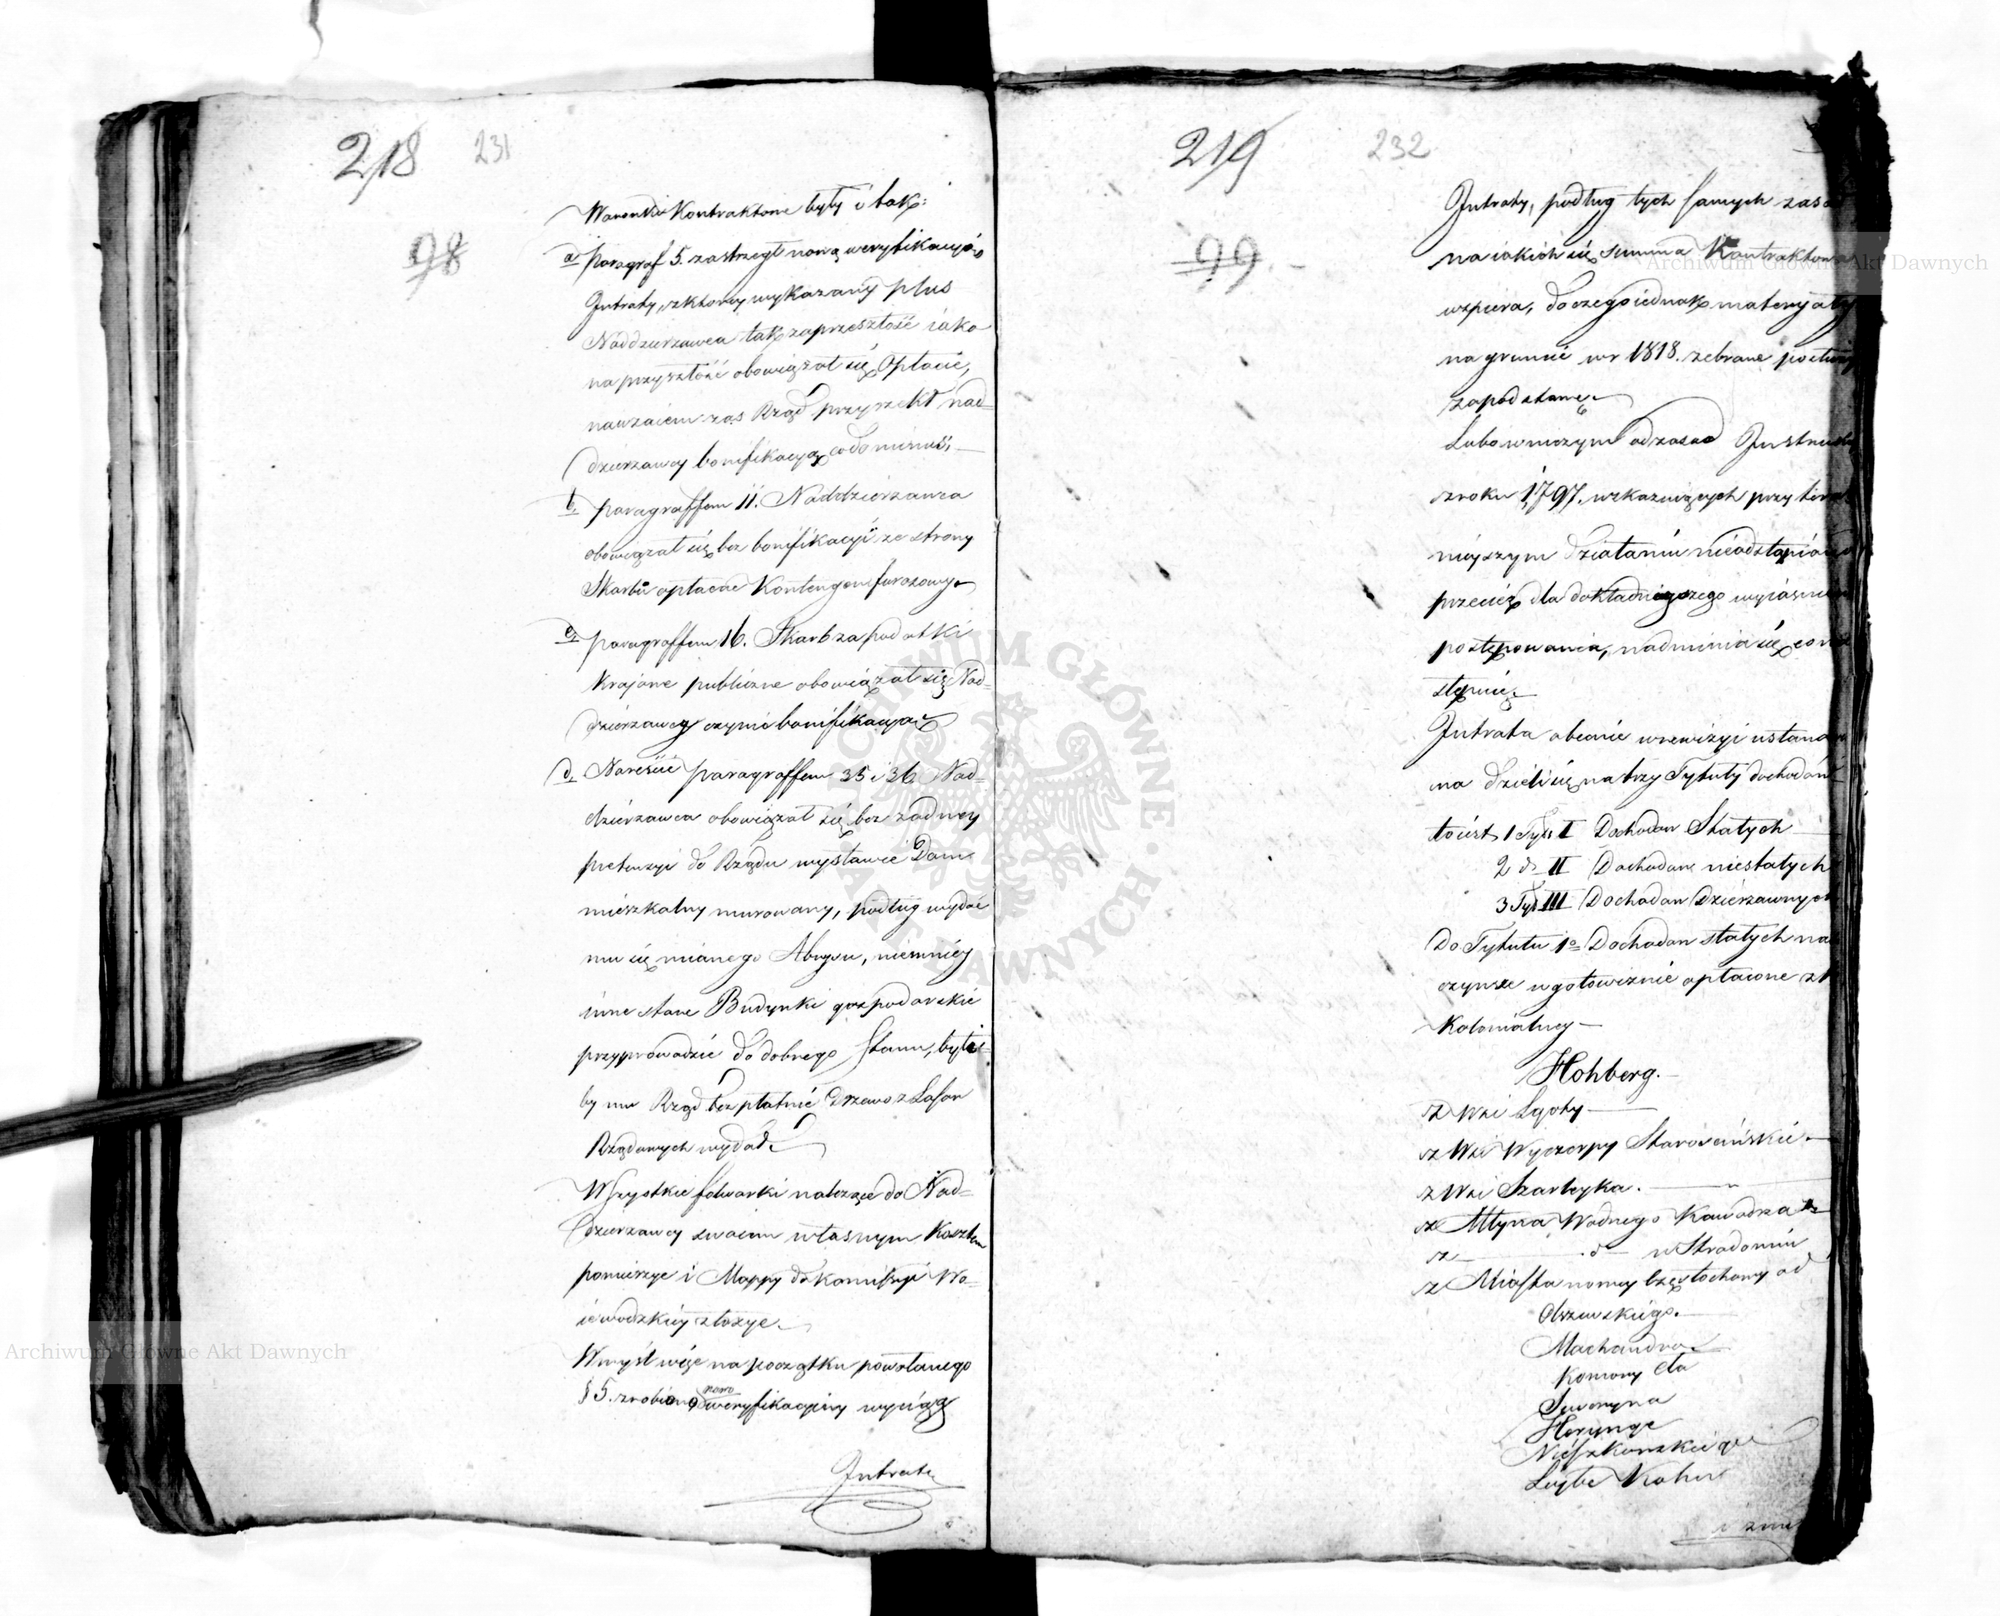 218 231
98
Warunki Kontraktowe były i tak:
a, paragraf 5. zastrzegł nową weryfikacyią
Intraty, z którey wykazany plus
Naddzierzawca tak za przeszłość iako
na przyszłość obowiązał się Opłacić,
nawzaiem zas Rząd przyrzekł nad-
dzierzawcy bonifikacyą co do minus. —
b, paragraffem 11. Naddzierzawca
obowiązał się bez bonifikacyi ze strony
Skarbu opłacać Kontengens furazowy.
c, paragraffem 16. Skarb za podatki
Krajowe publiczne obowiązał się Nad-
dzierzawcy czynić bonifikacyą.
d, Nareście paragraffem 35 i 36 Nad-
dzierzawca obowiązał się bez zadney
pretensyi do Rządu wystawić Dom
mieszkalny murowany, podług wydać
mu się mianego Abrysu, niemniey
inne stare Budynki gospodarskie
przyprowadzić do dobrego stanu, byle
by mu Rząd bezpłatnie Drzewo z Lasow
Rządowych wydał.
Wszystkie folwarki nalezące do Nad-
dzierzawcy swoiem własnym Kosztem
pomierzyc i Mappy do Kommissyi Wo-
iewodzkiey złozyc.
W myśl więc na początku powołanego
§ 5. zrobiono nowo weryfikacyiny wyciąg
Intraty
219 232
99
Intraty, podług tych samych zasa
na iakich się summa Kontraktowa
wspiera, do czego iednak materyały
na gruncie w r 1818. zebrane
za podstawę.
Lubo w niczym od zasad Instru
z roku 1797. wskazuiących przy
nieyszym działaniu nieodstąpiono
przecież dla dokładnieyszego wyiaśni
postępowania, nadmienia się co na
stępuie.
Intrata obecnie w rewizyi ustano
na dzieli się na trzy Tytuły dochodów
to iest 1 Tyt: I Dochodow Stałych
2 do II Dochodow niestałych
3 Tyt III Dochodow Dzierzawnych
Do Tytułu 1o Dochodow stałych na
czynsze w gotowiznie opłacone z K
Kolonialney —
Hohberg. —
z Wsi Lgoty —
z Wsi Wyczerpy Starościnskie. —
z Wsi Szarleyka. —
z Młyna Wodnego Kawodrza
z — do — w Stradomiu
z Miasta nowey Częstochowy od
Olszewskiego. —
Machandra
Komory Cła
Seweryna
Herynga
Lewbe Kohn